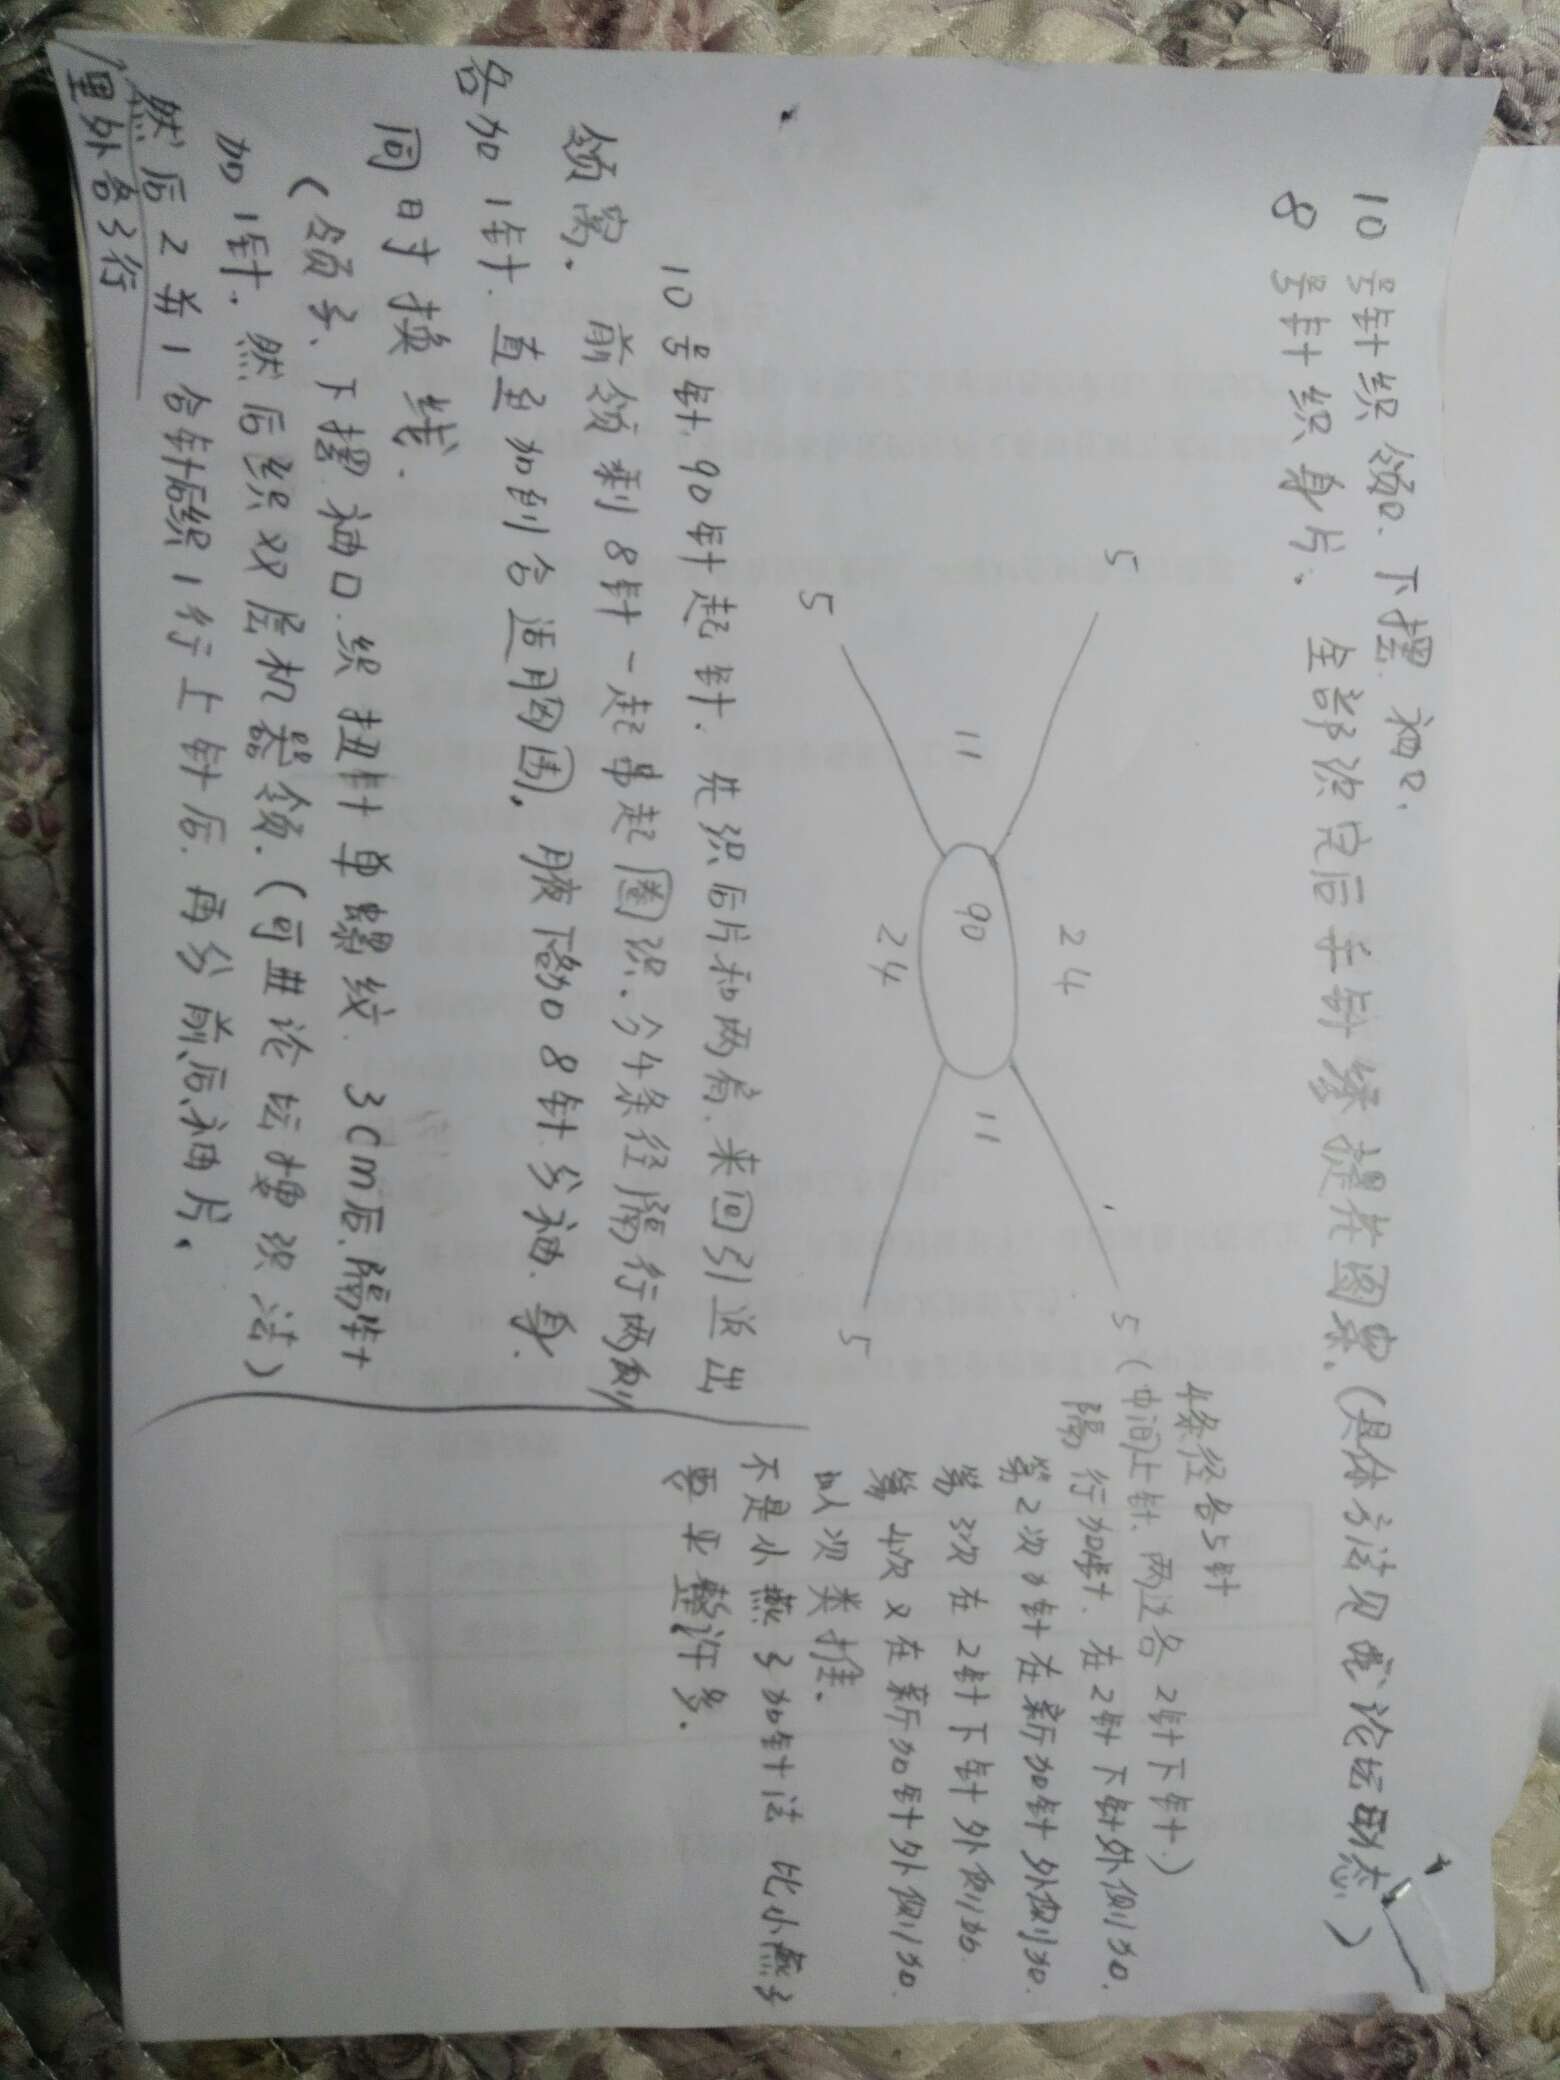 10号针织领口、下摆、袖口、
8号针织身片、全部织完后手针缝提花图案。(具体方法见我论坛动态)
4条径各5针
5(中间上针、两边各2针下针、)
隔行加针、在2针下针外侧加、
第2次加针在新加针外侧加、
第3次在2针下针外侧加、
第4次又在新加针外侧加、
以次类推。
不是小燕子加针法 比小燕子
要平整许多、
5
11
24
90
24
11
5
5
10号针、90针起针、先织后片和两肩、来回引返出
领窝。前领剩8针一起串起圈织、分4条径隔行两侧
各加1针、直至加到合适胸围。腋下加8针分袖、身、
同时换线、
(领子、下摆、袖口、织扭针单螺纹、3Cm后、隔针
加1针、然后织双层机器领、(可
论坛搜织法)
然后2并1合针后织1行上针后、再分前、后、袖片。
里外各3行